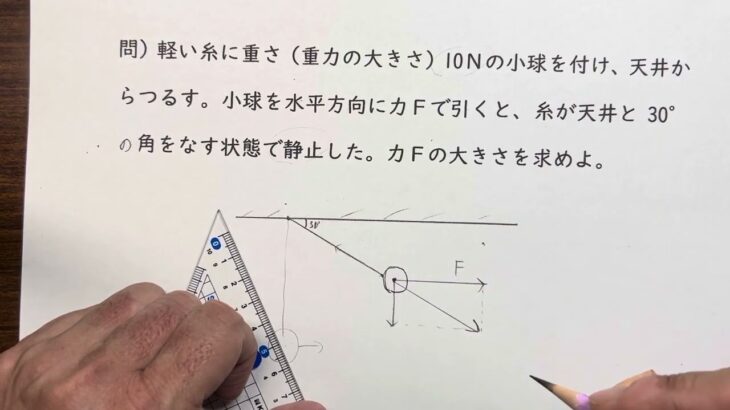 問) 軽い糸に重さ (重力の大きさ) 10Nの小球を付け、天井か
らつるす。小球を水平方向に力Fで引くと、糸が天井と 30°
の角をなす状態で静止した。力Fの大きさを求めよ。
30°
F